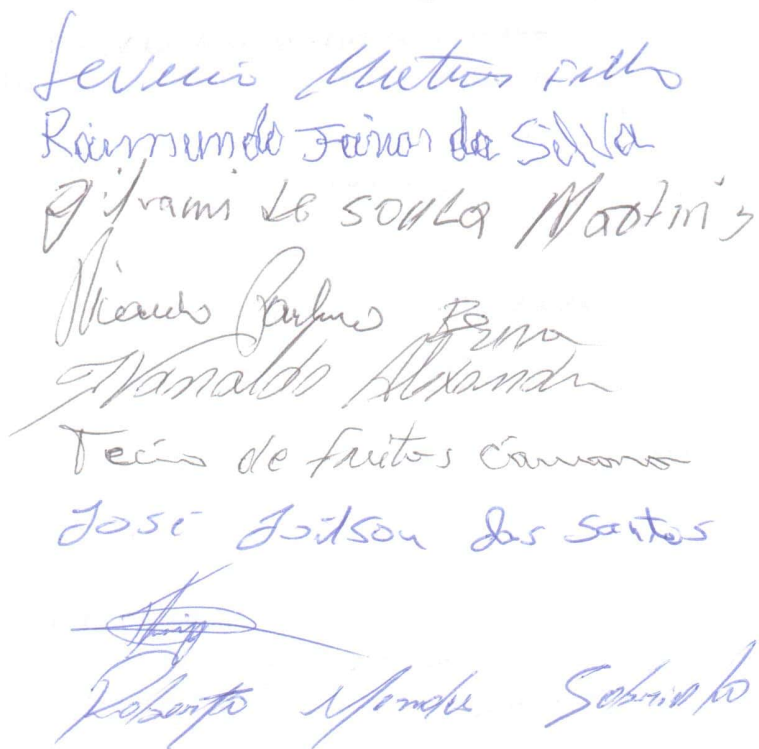 Severino Mateus Filho
Raimundo Farias da Silva
Gilvami de SOUZA Martins
Ricardo Barbino
Ivanaldo Alexandre
Tecio de Freitas Camara
José Joilson dos Santos
Roberto Mendes Sobrinho